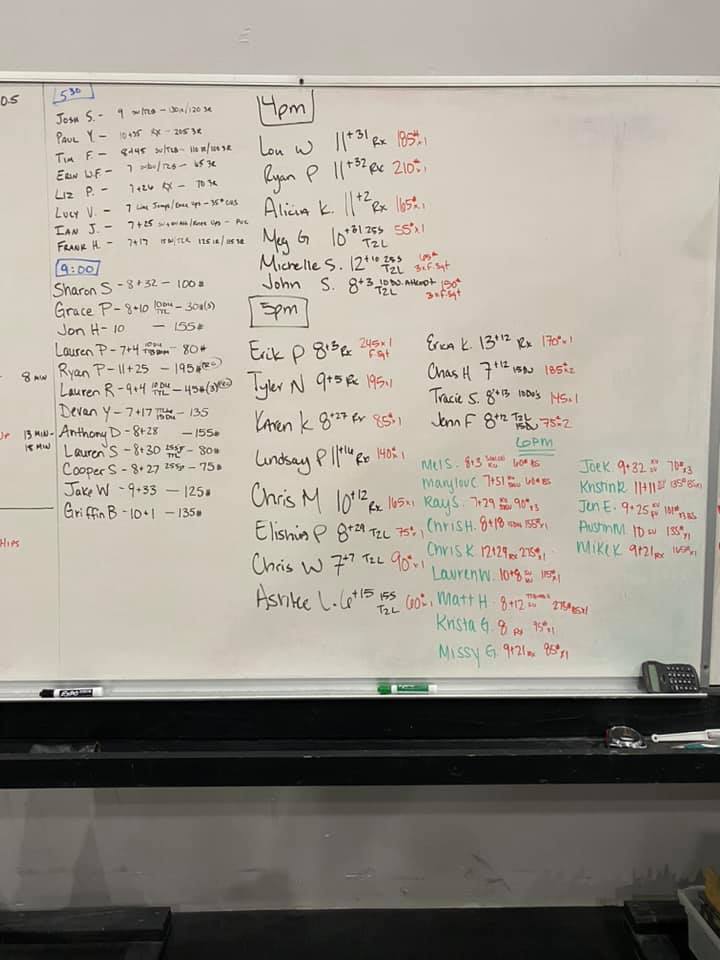 0.5
8 min
13 min-
18 min
HIPS
530
Josh S. - 9
Paul Y. - 10+35 Rx - 205 3R
Tim F. - 8+45
Erin W.F. - 7 65 3R
Liz P. - 7+26 Rx - 70 3R
Lucy V. - 7 Line Jumps/Knee Ups - 35#
Ian J. - 7+25 /Knee Ups - PVC
Frank H. - 7+17
9:00
Sharon S - 8+32 - 100#
Grace P - 8+10 10DU TTL - 30#(3)
Jon H - 10 - 155#
Lauren P - 7+4 10DU - 80#
Ryan P - 11+25 - 195#
Lauren R - 9+4 10DU TTL - 45#(3)
Devan Y - 7+17 - 135
Anthony D - 8+28 - 155#
Lauren S - 8+30 25SP TTL - 80#
Cooper S - 8+27 25SP - 75#
Jake W - 9+33 - 125#
Griffin B - 10+1 - 135#
4pm
Lou W 11+31 Rx 185#x1
Ryan P 11+32 Rx 210#x1
Alicia K. 11+2 Rx 165#x1
Meg G 10+31 25S T2L 55#x1
Michelle S. 12+10 25S T2L 65# 3xF.Sqt
John S. 8+3 10 DU. Attempt T2L 3xF.Sqt
5pm
Erik P 8+3 Rx 245x1 F Sqt
Tyler N 9+5 Rx 195x1
Karen K 8+27 Rx 85#x1
Lindsay P 11+16 Rx 140#x1
Chris M 10+12 Rx 165x1
Elishia P 8+29 T2L 75#x1
Chris W 7+7 T2L 90#x1
Ashlee L. 6+15 15S T2L 60#x1
Erica K. 13+12 Rx 170#x1
Chas H 7+12 15DU 185#x2
Tracie S. 8+13 10DU's 145x1
Jenn F 8+12 T2L 15DU 75#x2
6pm
Mel S. 8+3 60# BS
Marylou C 7+51 60# BS
Ray S. 7+29 90#x3
Chris H. 8+18 15DU 155#x1
Chris K. 12+29 Rx 275#x1
Lauren W. 10+8 115#x1
Matt H. 8+12 275# BSx1
Krista G. 8 Rx 95#x1
Missy G. 9+21 Rx 85#x1
Joe K. 9+32 70#x3
Kristin R 11+11 135# BSx1
Jen E. 9+25
Austin M. 10 135#x1
Mike K. 9+21 Rx 165#x1
EXPO